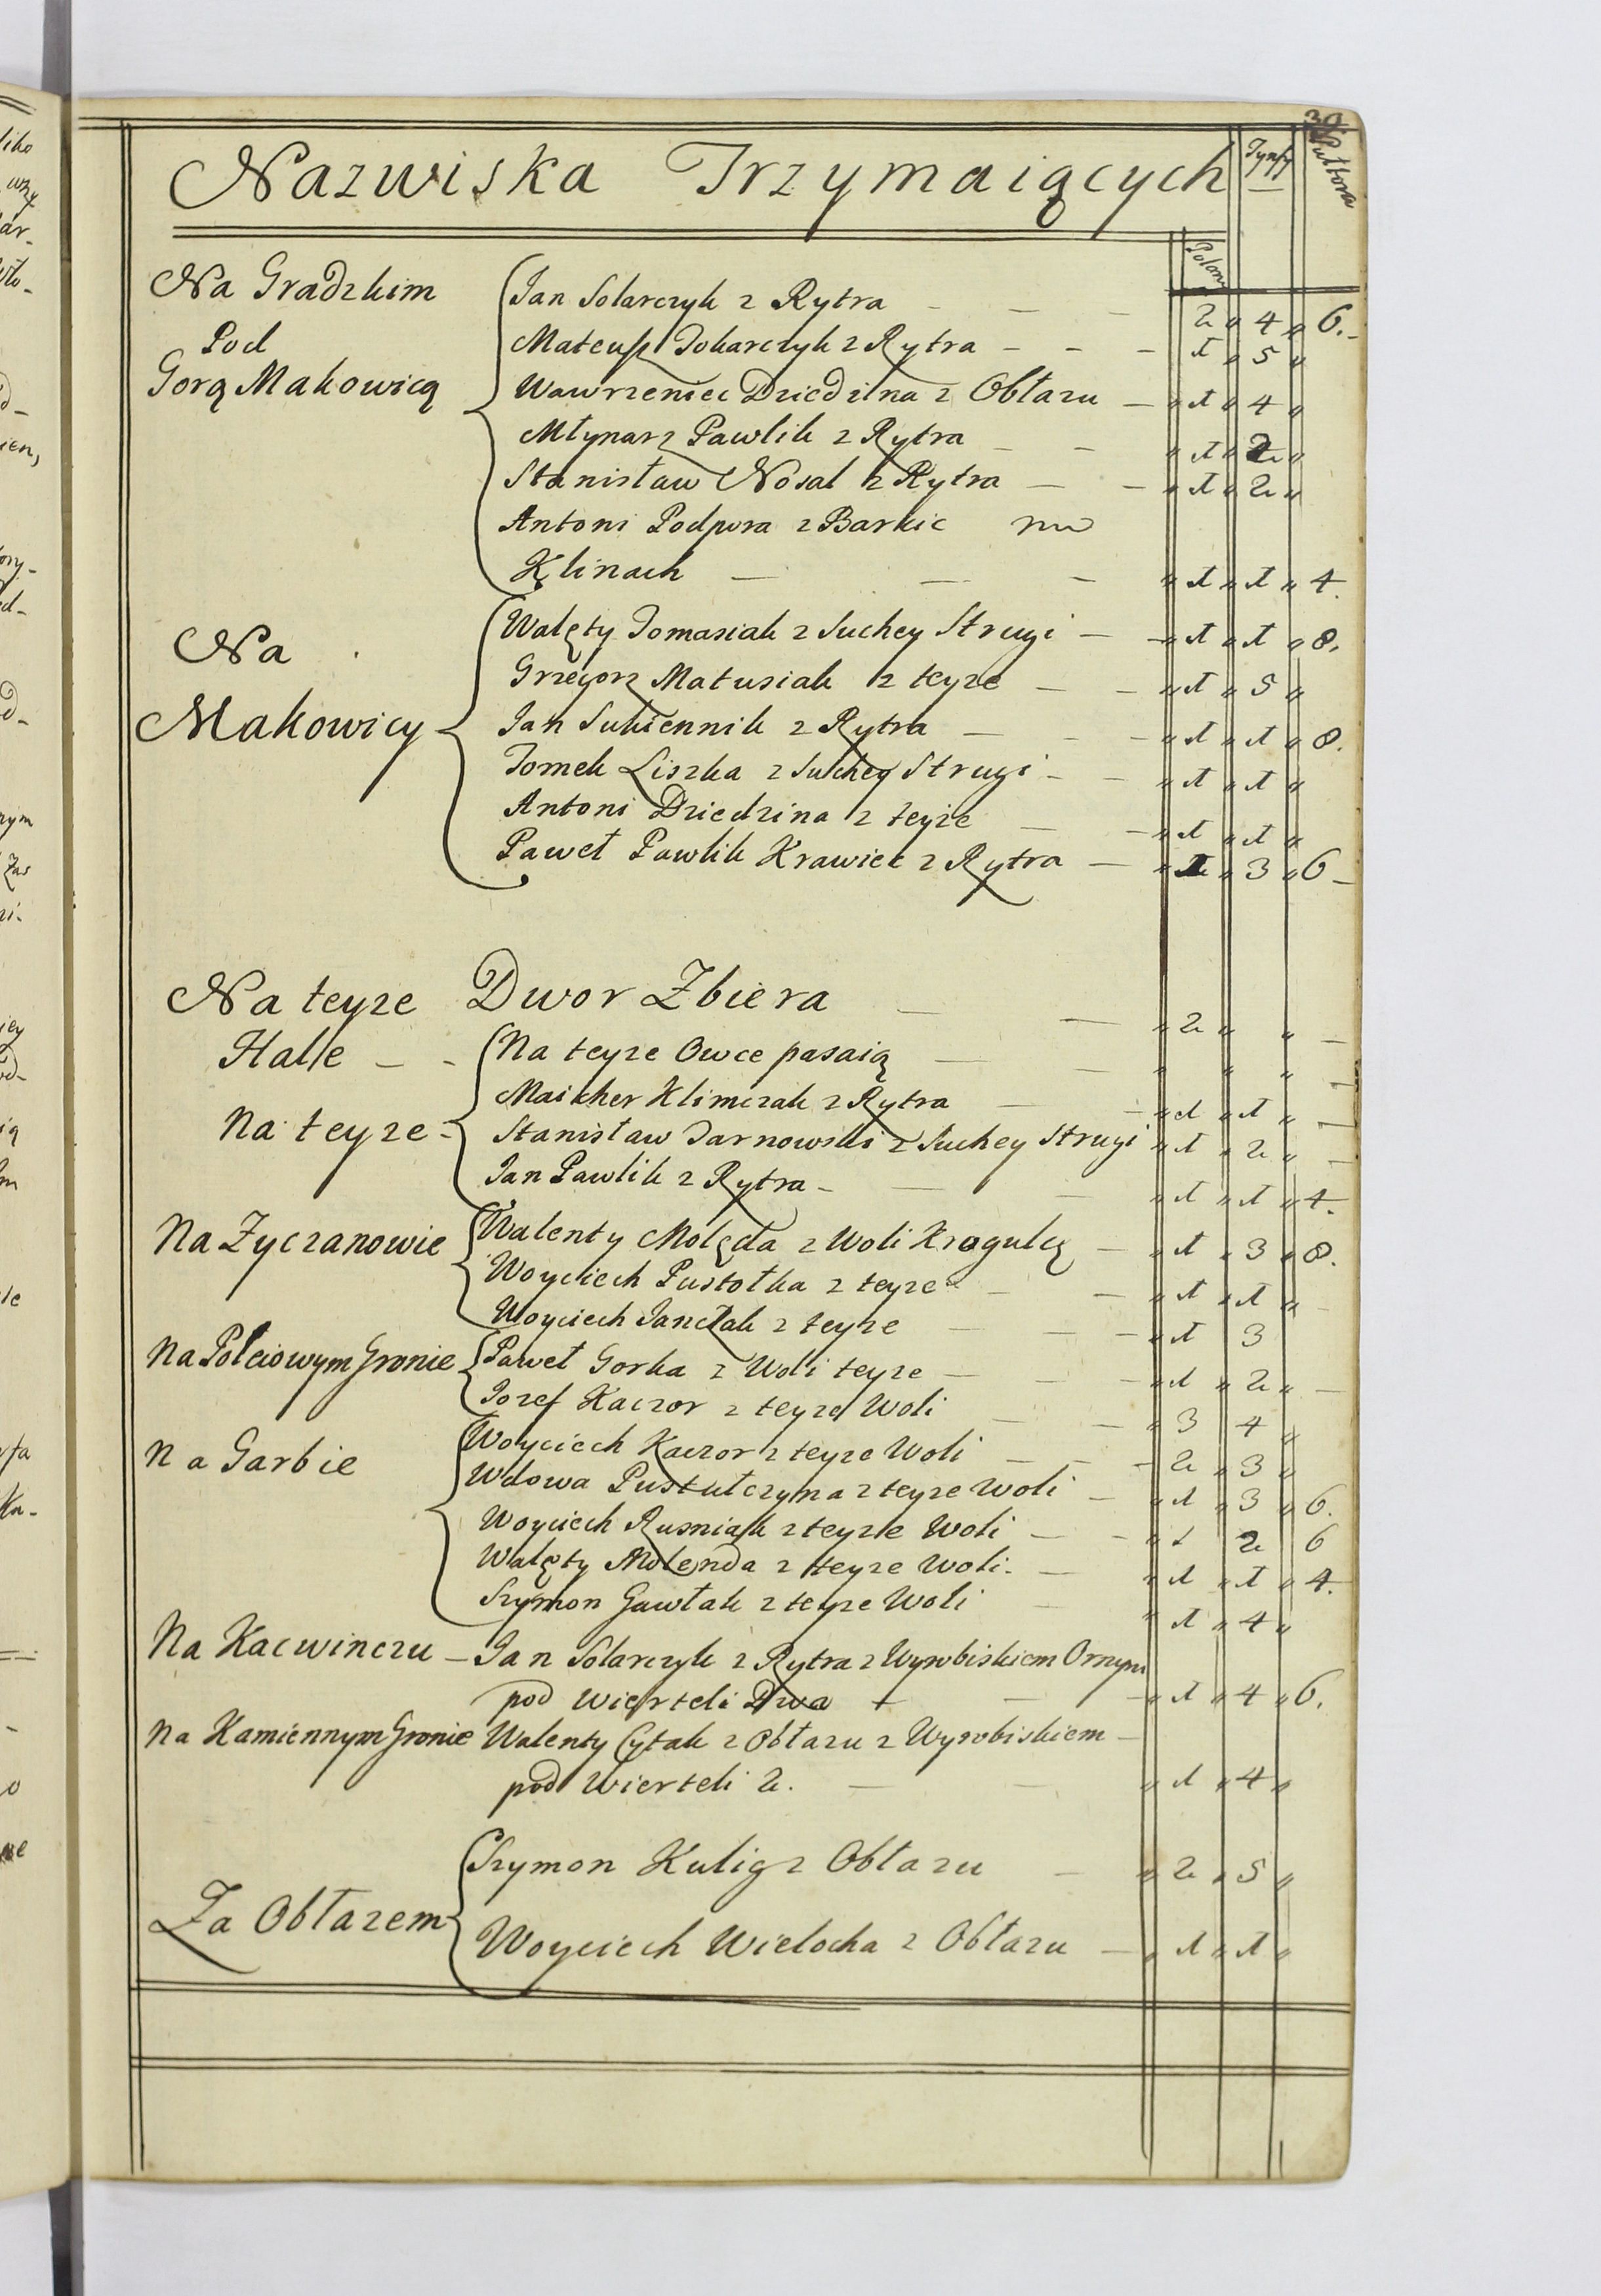 30
Nazwiska Trzymaiących Tynfy Puttora
Polany
Na Gradzkim Jan Solarczyk z Rytra — — — 2 " 4 " 6. -
Pod Mateusz Tokarczyk z Rytra — - - 1 " 5 "
Gorą Makowicą Wawrzeniec Dziedzina z Obłazu — " 1 " 4 "
Młynarz Pawlik z Rytra — - " 1 " 2 "
Stanisław Nosal z Rytra — - " 1 " 2 "
Antoni Podpora z Barkic na
Klinach — — - " 1 " 1 " 4.
Na Walęty Tomasiak z Suchey Strugi — - " 1 " 1 " 8.
Grzegorz Matusiak z teyze — - " 1 " 5 "
Makowicy Jan Sukiennik z Rytra — - - " 1 " 1 " 8.
Tomek Liszka z Suchey Strugi - - " 1 " 1 "
Antoni Dziedzina z teyze — - " 1 " 1 "
Paweł Pawlik Krawiec z Rytra — " 1 " 3 " 6 -
Na teyze Dwor Zbiera — — " 2 " " -
Halle — - Na teyze Owce pasaią — — " " " -
Maicher Klimczak z Rytra — - " 1 " 1 " -
Na teyze - Stanisław Tarnowski z Suchey Strugi " 1 " 2 " -
Jan Pawlik z Rytra - — — " 1 " 1 " 4.
Na Zyczanowie Walenty Molęda z Woli Krogulcę — " 1 " 3 " 8.
Woyciech Pustołka z teyze - — " 1 " 1 " -
Woyciech Janczak z teyze — — - " 1 3
Na Połciowym Gronie Paweł Gorka z Woli teyze — — - " 1 " 2 " -
Jozef Kaczor z teyze Woli — - " 3 4 "
Na Garbie Woyciech Kaczor z teyze Woli — - - 2 " 3 "
Wdowa Pustułczyna z teyze Woli — " 1 " 3 " 6.
Woyciech Rusniak z teyze Woli — - " 1 2 6
Walęty Molenda z teyze Woli. — " 1 " 1 " 4.
Szymon Gawłak z teyze Woli — " 1 " 4 "
Na Kacwinczu — Jan Solarczyk z Rytra z Wyrobiskiem Ornym
pod Wierteli Dwa — — - " 1 " 4 " 6.
Na Kamiennym Gronie Walenty Cytak z Obłazu z Wyrobiskiem —
pod Wierteli 2. — — " 1 " 4 "
Szymon Kulig z Obłazu — " 2 " 5 "
Za Obłazem
Woyciech Wielocha z Obłazu — " 1 " 1 "